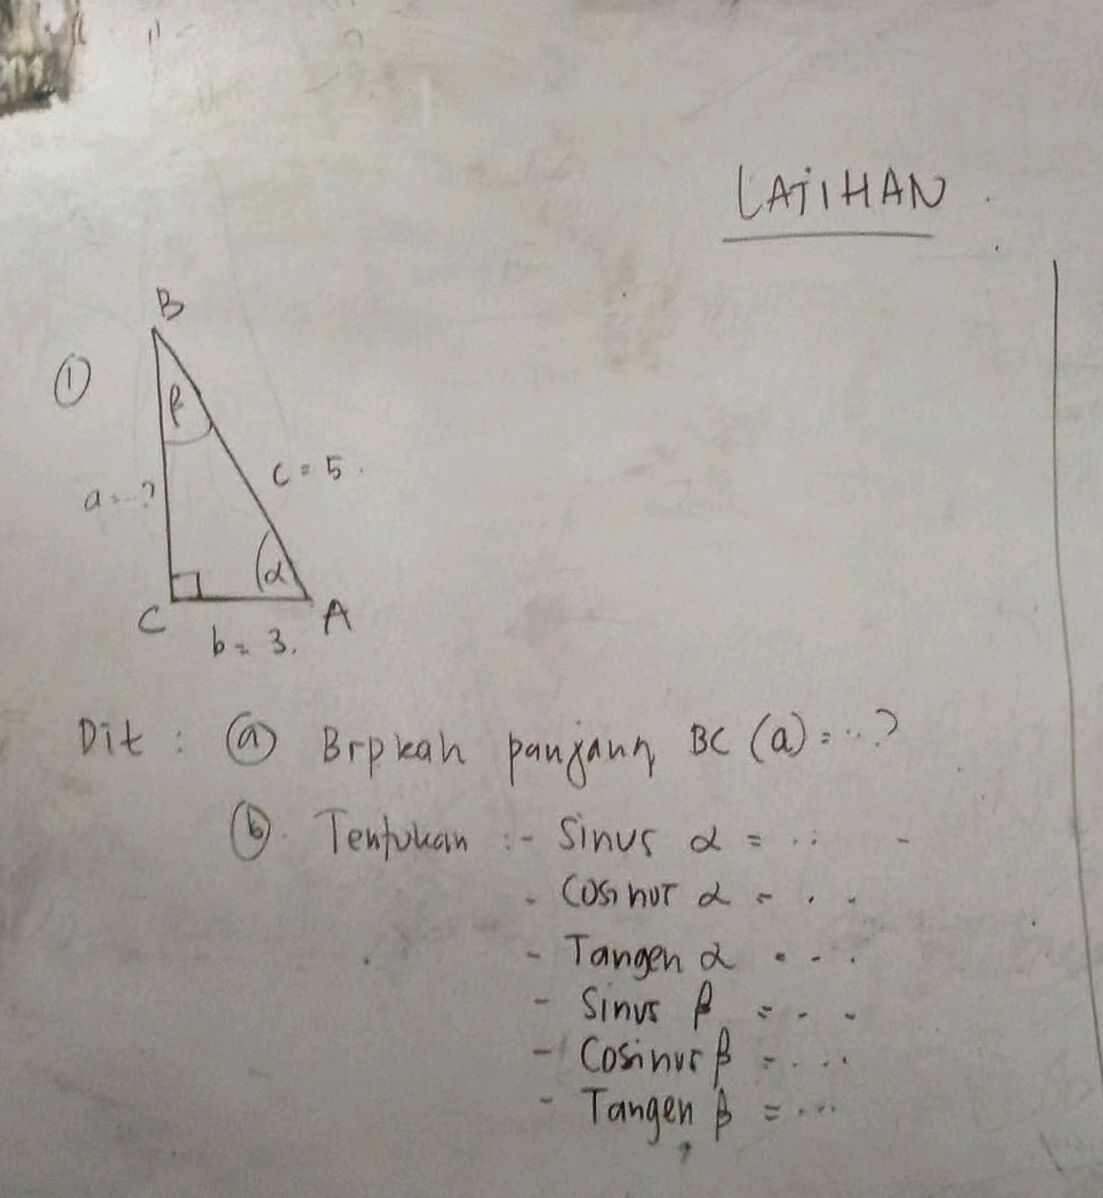 LATIHAN
B
①
β
c = 5
a = ..?
α
C
A
b = 3.
Dit : ⓐ Brpkah panjang BC (a) = ...?
ⓑ. Tentukan : - Sinus α = ...
- Cosinus α = ...
- Tangen α = ...
- Sinus β = ...
- Cosinus β = ....
- Tangen β = ....